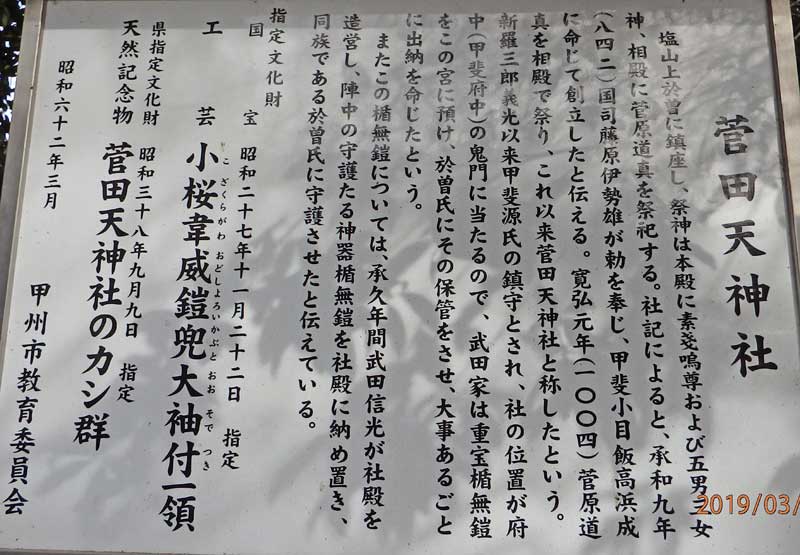 菅田天神社
塩山上於曽に鎮座し、祭神は本殿に素戔嗚尊および五男三女
神、相殿に菅原道真を祭祀する。社記によると、承和九年
(八四二)国司藤原伊勢雄が勅を奉じ、甲斐小目飯高浜成
に命じて創立したと伝える。寛弘元年(一〇〇四)菅原道
真を相殿で祭り、これ以来菅田天神社と称したという。
新羅三郎義光以来甲斐源氏の鎮守とされ、社の位置が府
中(甲斐府中)の鬼門に当たるので、武田家は重宝楯無鎧
をこの宮に預け、於曽氏にその保管をさせ、大事あるごと
に出納を命じたという。
またこの楯無鎧については、承久年間武田信光が社殿を
造営し、陣中の守護たる神器楯無鎧を社殿に納め置き、
同族である於曽氏に守護させたと伝えている。
指定文化財
国宝 昭和二十七年十一月二十二日 指定
工芸 小桜韋威鎧兜大袖付一領
こざくらがわおどしよろいかぶとおおそでつき
県指定文化財 昭和三十八年九月九日 指定
天然記念物 菅田天神社のカシ群
昭和六十二年三月
甲州市教育委員会
2019/03/